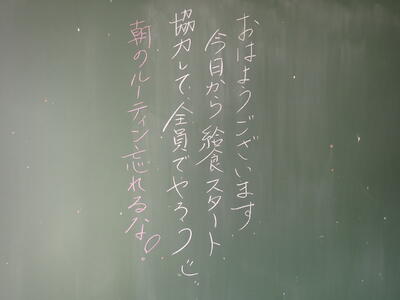 おはようございます
今日から給食スタート
協力して、全員でやろう
朝のルーティン忘れるな!